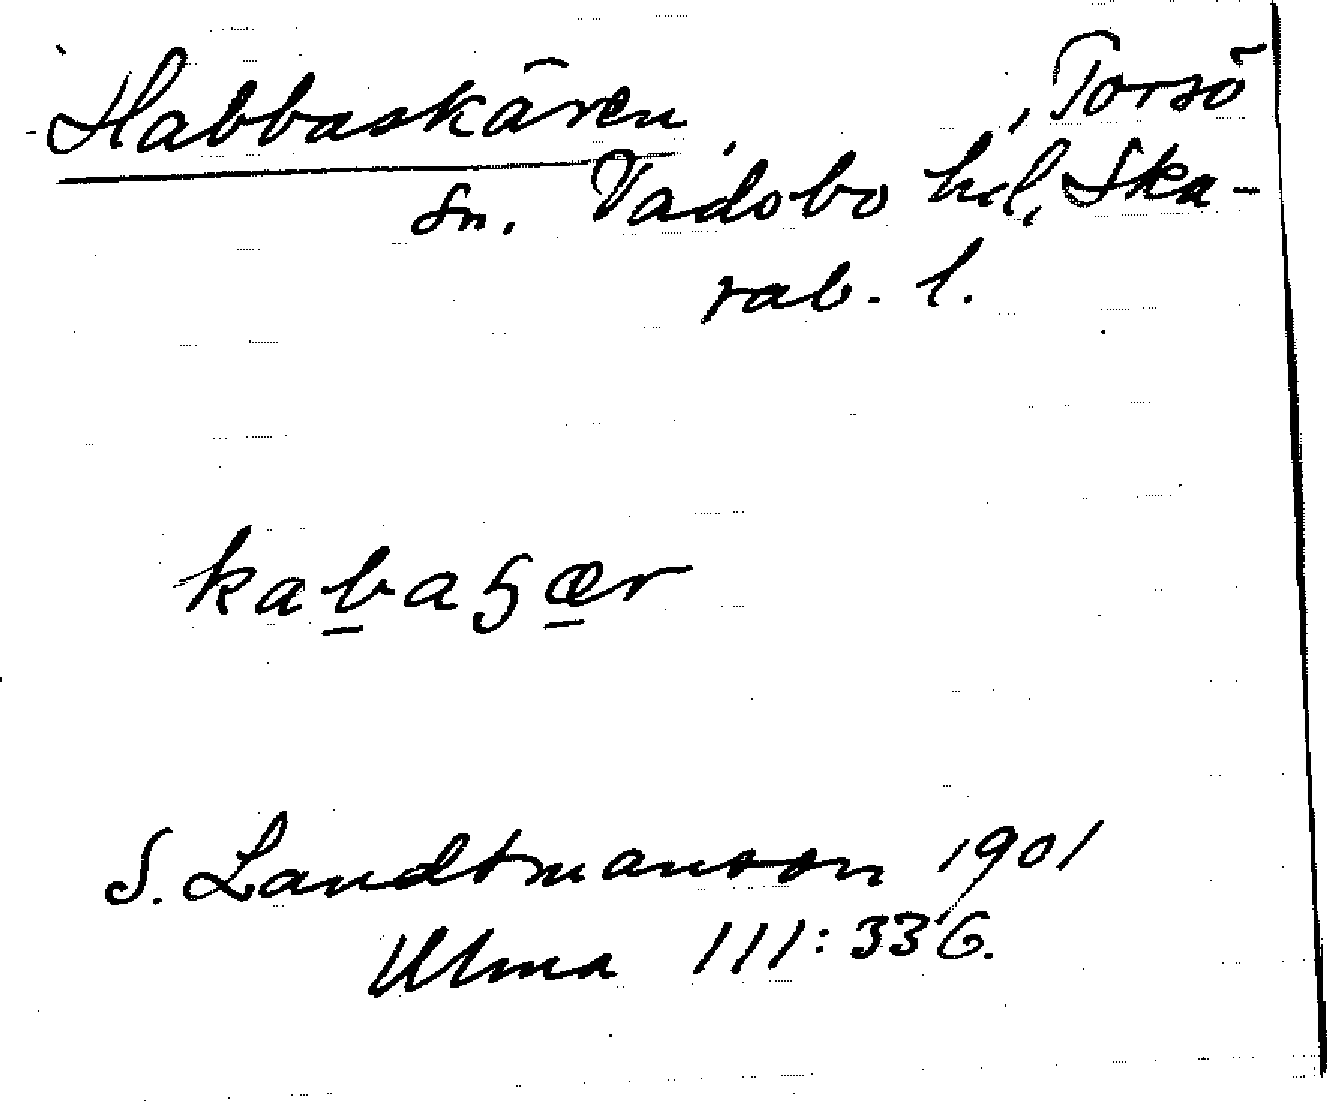 Habbaskären, Torsö
sn. Vadsbo hd, Ska-
rab. l.
kabaʂær
S. Landtmanson 1901
Ulma 111:336.